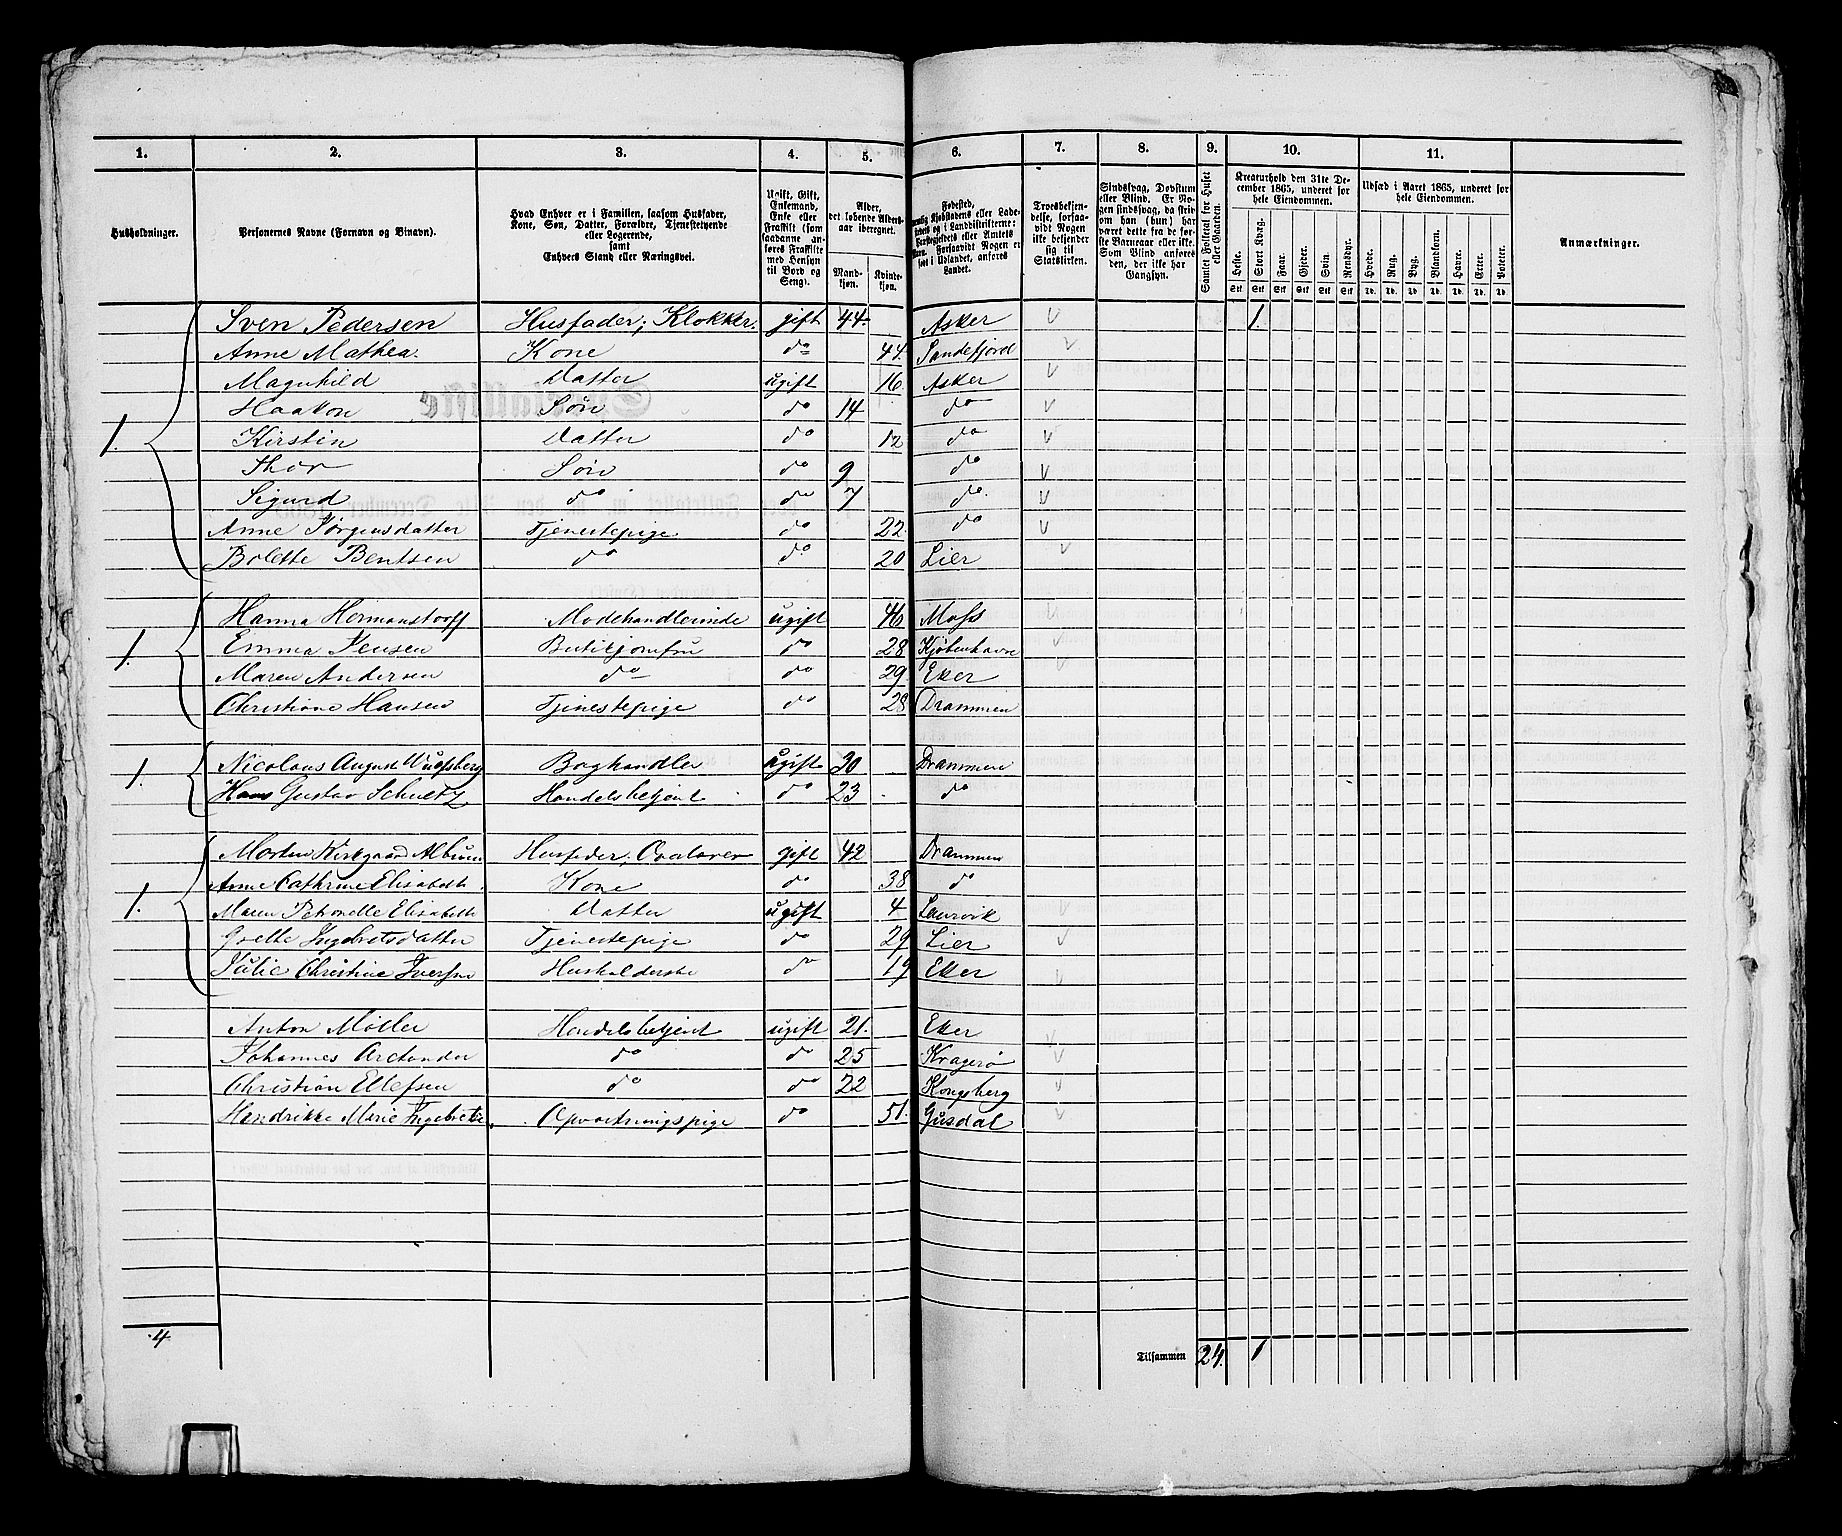 1. 2. 3. 4. 5. 6. 7. 8. 9. 10. 11.
Husholdninger.
Personernes Navne (Fornavn og Binavn).
Hvad Enhver er i Familien, saasom Husfader, Kone, Søn, Datter, Forældre, Tjenestetyende eller Logerende, samt Enhvers Stand eller Næringsvei.
Ugift, Gift, Enkemand, Enke eller Fraskilt (som saadanne anføres Fraskilte med Hensyn til Bord og Seng).
Alder, det løbende Aldersaar iberegnet.
Mandkjøn. Kvindekjøn.
Fødested, Kjøbstadens eller Ladestedets og i Landdistrikterne: Præstegjeldets eller Amtets Navn. Forsaavidt Nogen er født i Udlandet, anføres Landet.
Troesbekjendelse, forsaavidt Nogen ikke bekjender sig til Statskirken.
Sindssvag, Døvstum eller Blind. Er Nogen sindssvag, da skrives om han (hun) har været dette fra de første Barneaar eller ikke. Som Blind anføres den, der ikke har Gangsyn.
Samlet Folketal for Huset eller Gaarden.
Kreaturhold den 31te December 1865, underet for hele Eiendommen.
Heste. Stort Kvæg. Faar. Gjeder. Svin. Rensdyr.
Stk Stk Stk Stk Stk Stk
Udsæd i Aaret 1865, underet for hele Eiendommen.
Hvede. Rug. Byg. Blandkorn. Havre. Erter. Poteter.
Td. Td. Td. Td. Td. Td. Td.
Anmærkninger.
Sven Pedersen Husfader; Klokker. gift 44. Asker 1.
Anne Mathea. Kone do 44. Sandefjord
Magnhild Datter ugift 16. Asker
Haakon Søn do 14 do
1. Kirstin Datter do 12 do
Thor Søn do 9 do
Sigurd do do 7 do
Anne Jørgensdatter Tjenestepige do 22. do
Bolette Bentsen do do 20 Lier
Hanna Hermanstorff Modehandlerinde ugift 46 Moss
1. Emma Jensen Butikjomfru do 28 Kjøbenhavn
Maren Andersen do do 29 Eker
Christiane Hansen Tjenestepige do 28 Drammen
1. Nicolaus August Boghandler ugift 30 Drammen
Hans Gustav Schultz Handelsbetjent do 23 do
Morten Kirkgaard Album Husfader; gift 42 Drammen
Anne Cathrine Elisabeth Kone do 38 do
1. Maren Petronelle Elisabeth Datter ugift 4 Laurvik
Grette Ingebretsdatter Tjenestepige do 29 Lier
Julie Christine Iversen Husholderske do 19 Eker
Anton Møller Handelsbetjent ugift 21. Eker
Johannes Arctander do do 25 Kragerø
Christian Ellefsen do do 22 Kongsberg
Hendrikke Marie Opvartningspige do 51. Gusdal
4
Tilsammen 24. 1